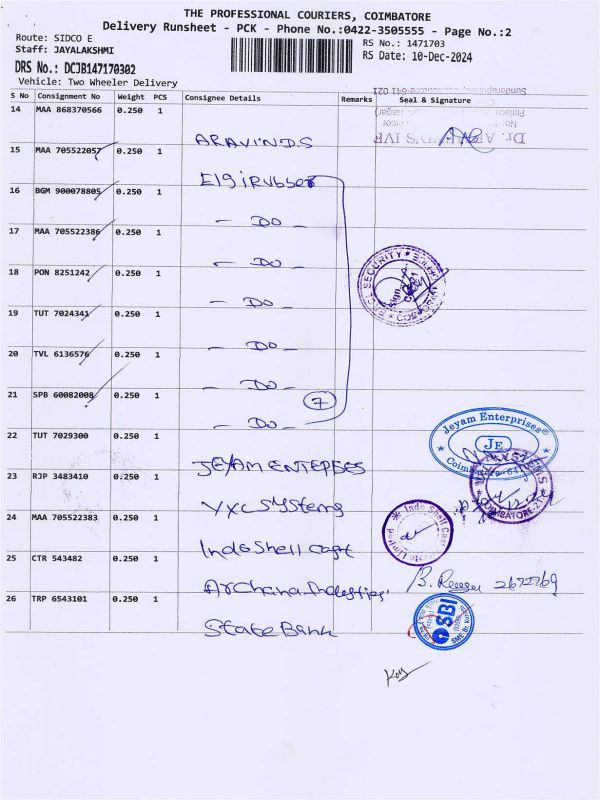 THE PROFESSIONAL COURIERS, COIMBATORE
Delivery Runsheet - PCK - Phone No.:0422-3505555 - Page No.:2
Route: SIDCO E
Staff: JAYALAKSHMI
RS No.: 1471703
RS Date: 10-Dec-2024
DRS No.: DCJB147170302
Vehicle: Two Wheeler Delivery
S No Consignment No Weight PCS Consignee Details Remarks Seal & Signature
14 MAA 868370566 0.250 1 ARAVINDS
Dr. ARAVIND'S IVF
15 MAA 705522057 0.250 1 Elgirubber
16 BGM 900078805 0.250 1 - DO -
17 MAA 705522386 0.250 1 - DO -
18 PON 8251242 0.250 1 - DO -
19 TUT 7024341 0.250 1 - DO -
20 TVL 6136576 0.250 1 - DO -
21 SPB 60082008 0.250 1 - DO -
7
22 TUT 7029300 0.250 1 JEYAM ENTERPISES
Jeyam Enterprises
JE
23 RJP 3483410 0.250 1 VXL Systems
COIMBATORE-21
24 MAA 705522383 0.250 1 Indo Shell Cast
Indo Shell Cast
25 CTR 543482 0.250 1 Archana Industries
2672769
26 TRP 6543101 0.250 1 State Bank
SBI